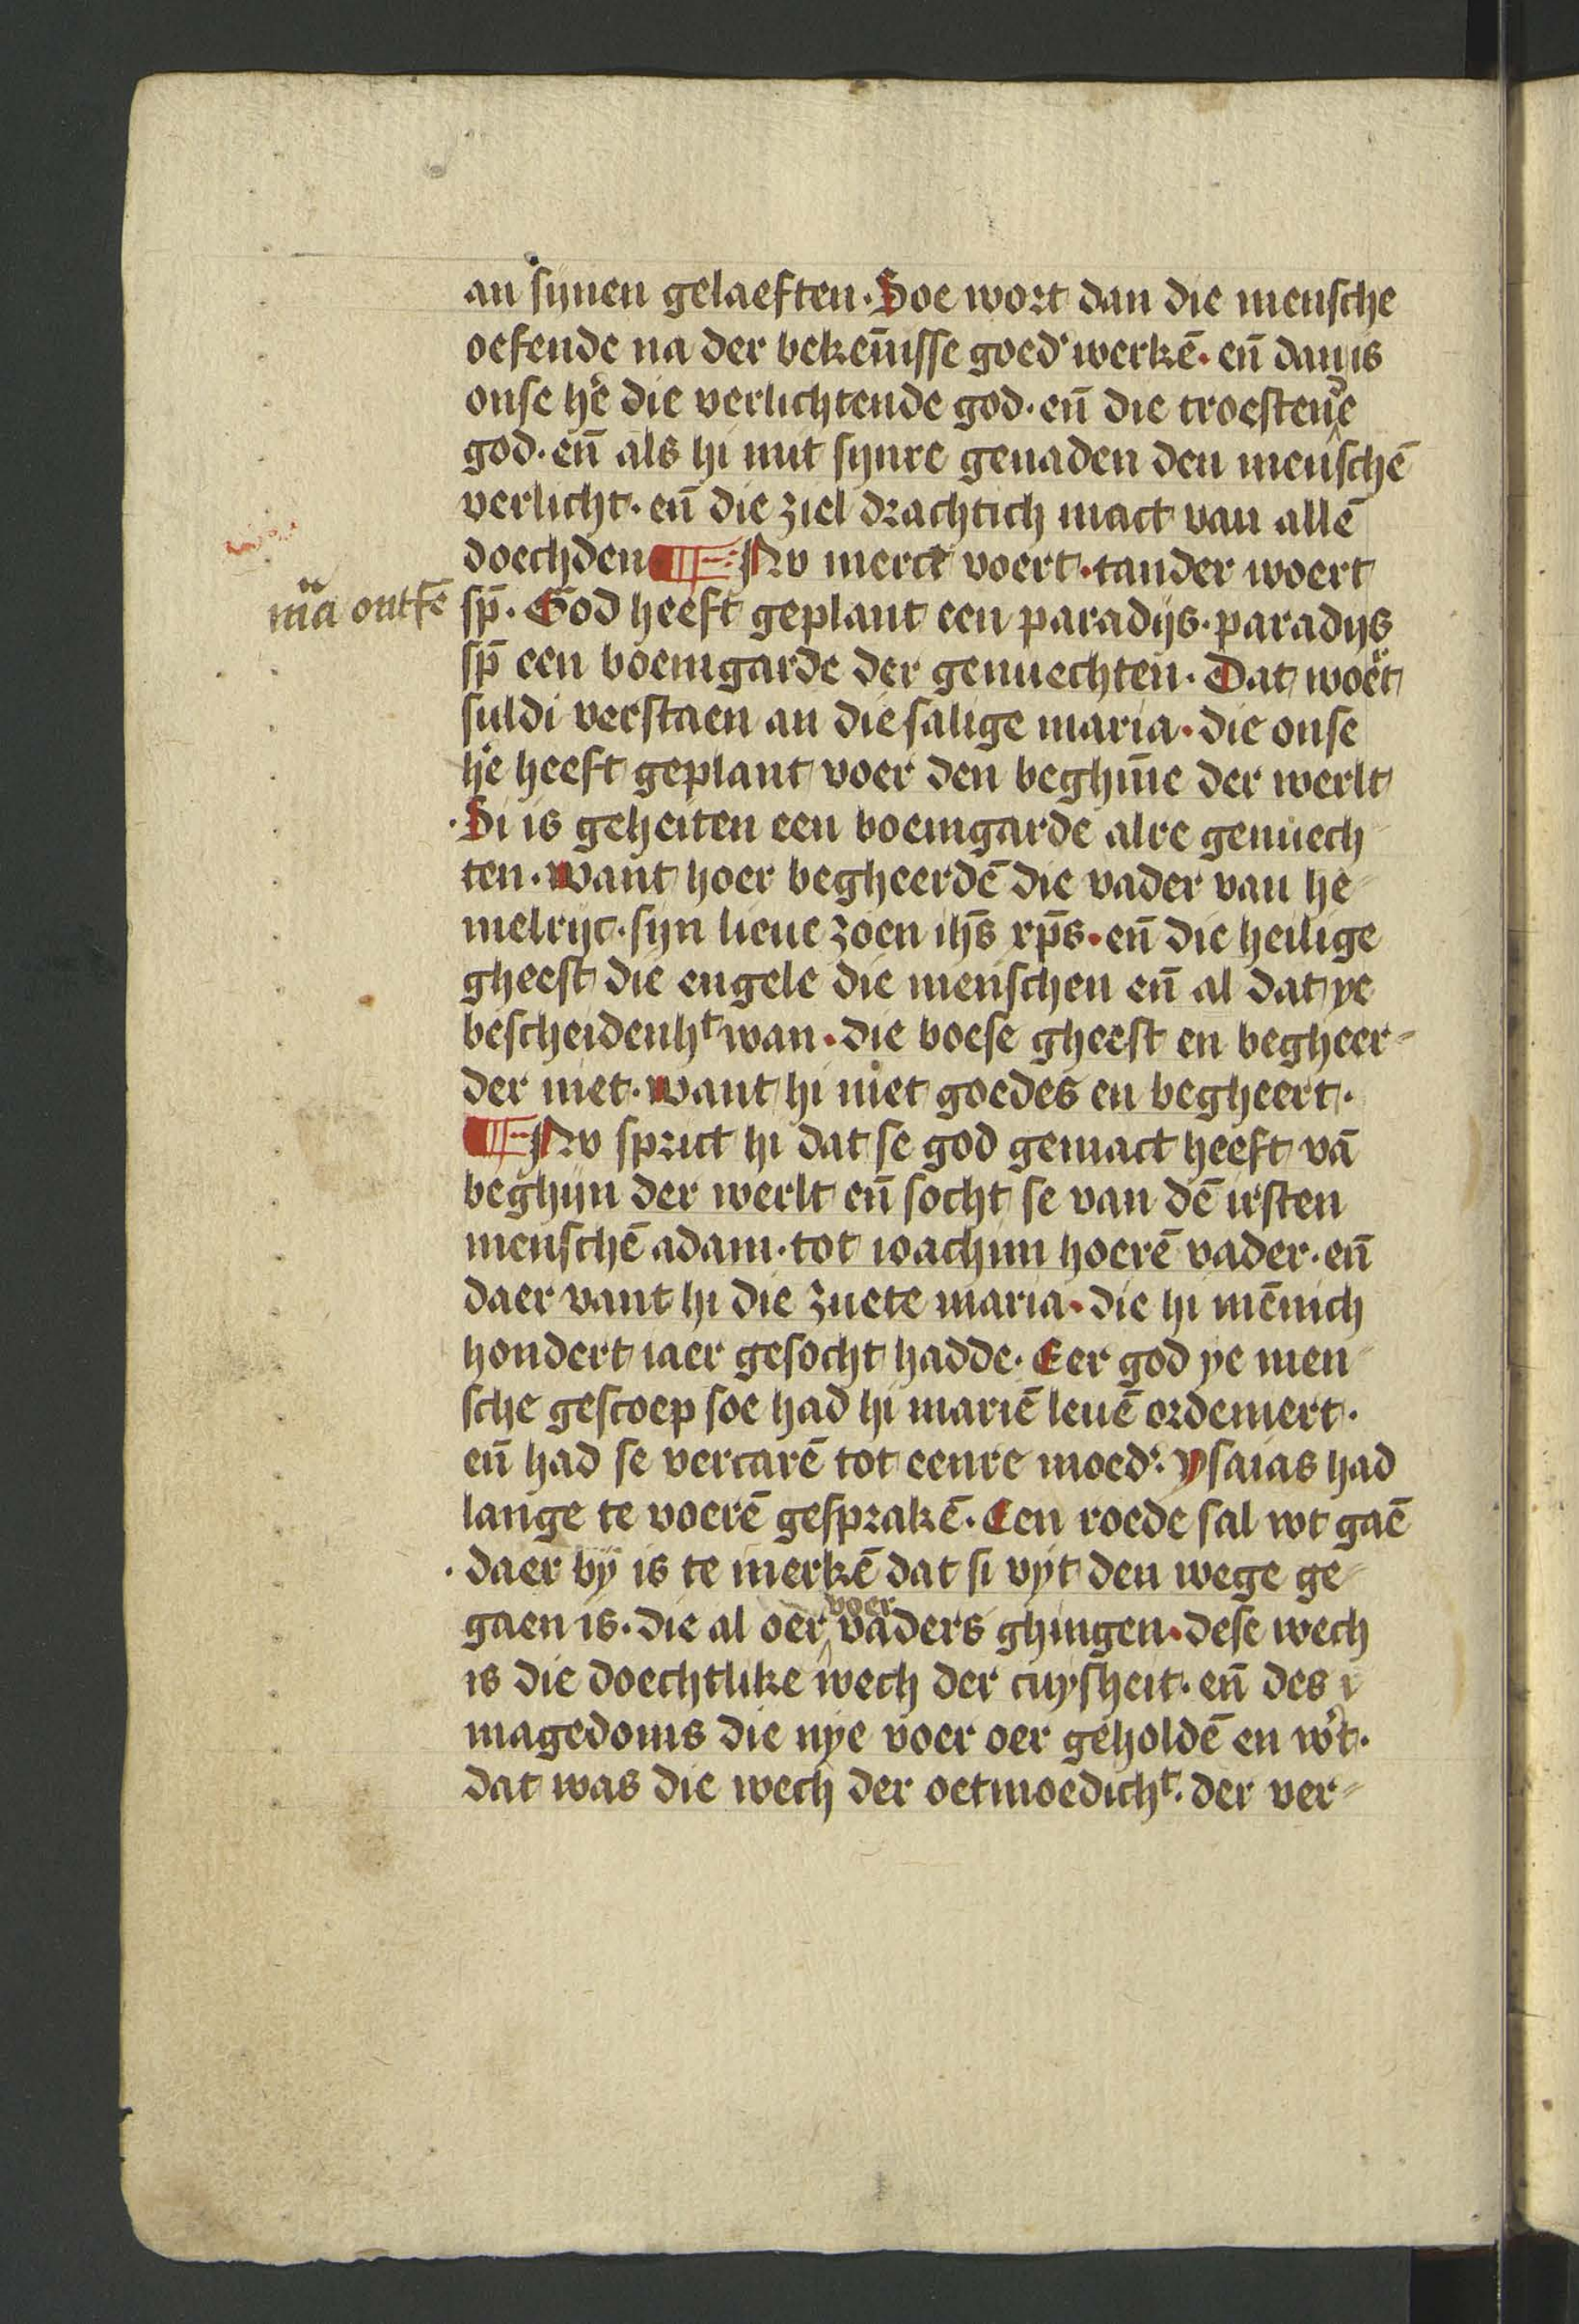 an synen gelaeften. Soe wort dan die mensche
oefende na der bekēnisse goed' werkē. eñ dan is
onse he' die verlichtende god. eñ die troestende
god. eñ als hi mit synre genaden den menschē
verlicht. eñ die ziel drachtich mact van allē
doechden ¶ Nv merct voert. tander woert
m̈a ontfē
sp̄. God heeft geplant een paradijs. paradijs
sp̄ een boemgarde der genuechten. Dat woe't
suldi verstaen an die salige maria. die onse
he' heeft geplant voer den beghīne der werlt
. Si is geheiten een boemgarde alre genuech
ten. want hoer begheerdē die vader van he
melrijc. syn lieue zoen ihs̄ xp̄s. eñ die heilige
gheest die engele die menschen eñ al dat ye
bescheidenhᵗ wan. die boese gheest en begheer
der niet. want hi niet goedes en begheert.
¶ Nv sprict hi dat se god gemact heeft vā
beghijn der werlt eñ socht se van dē irsten
menschē adam. tot ioachim hoerē vader. eñ
daer vant hi die zuete maria. die hi mēnich
hondert iaer gesocht hadde. Eer god ye men
sche gescoep soe had hi mariē leuē ordeniert.
eñ had se vercarē tot eenre moed'. ysaias had
lange te voerē gesprakē. Een roede sal wt gaē
. daer by is te merkē dat si vyt den wege ge
gaen is. die al oer voer vaders ghingen. dese wech
is die doechtlike wech der cuysheit. eñ des
magedoms die nye voer oer geholdē en w't.
dat was die wech der oetmoedichᵗ. der ver